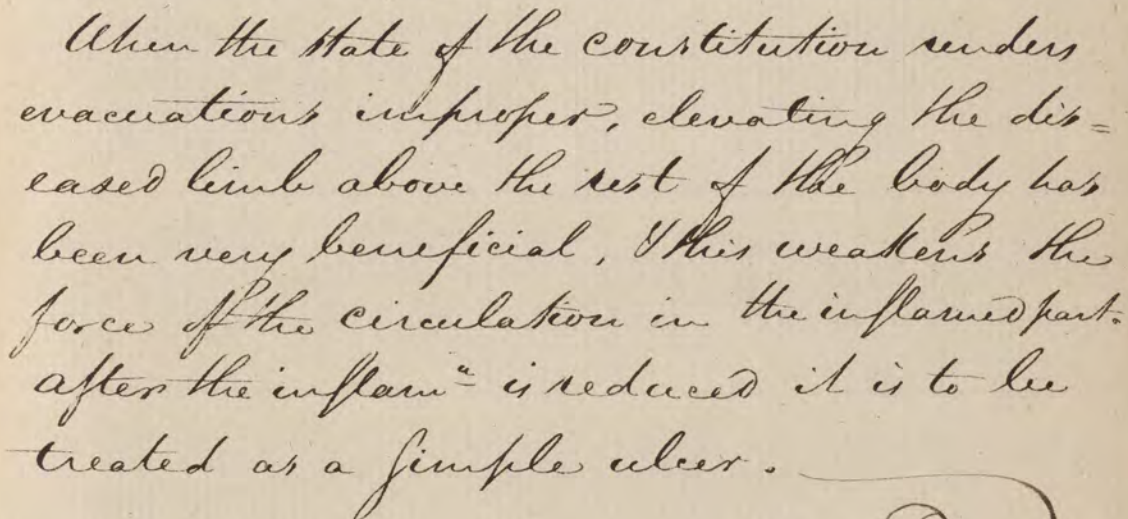 When the state of the constitution renders
evacuations improper, elevating the dis=
eased limb above the rest of the body has
been very beneficial, & this weakens the
force of the circulation in the inflamed part.
after the inflamⁿ is reduced it is to be
treated as a simple ulcer.